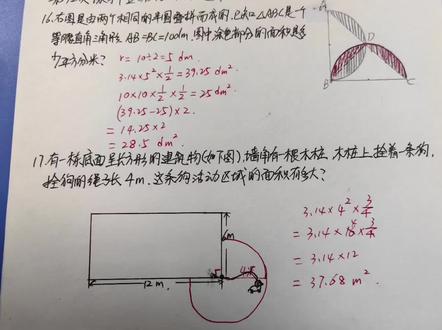 16. 右图是由两个相同的半圆叠拼而成的.已知△ABC是一个
等腰直角三角形 AB=BC=10dm.图中涂色部分的面积是
少平方分米?
r = 10÷2 = 5 dm
3.14×5²×1/2 = 39.25 dm²
10×10×1/2×1/2 = 25 dm²
(39.25-25)×2
= 14.25×2
= 28.5 dm²
A
D
B
C
17. 有一栋底面是长方形的建筑物(如下图).墙角有一根木桩,木桩上拴着一条狗,
拴狗的绳子长4m.这条狗活动区域的面积有多大?
6m
12m
3.14×4²×3/4
= 3.14×16×3/4
= 3.14×12
= 37.68 m²